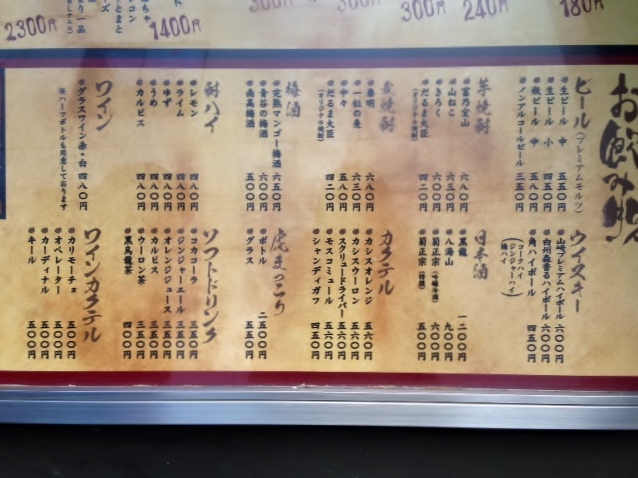 2300円
1400円
300円
240円
180円
お飲み物
ビール(プレミアムモルツ)
生ビール 中 五五〇円
生ビール 小 四五〇円
瓶ビール 中 五八〇円
ノンアルコールビール 三五〇円
芋焼酎
富乃宝山 六八〇円
山ねこ 六三〇円
きろく 六〇〇円
だるま大臣 四二〇円
(オリジナル焼酎)
麦焼酎
兼明
六八〇円
一粒の麦 六三〇円
中々 五八〇円
だるま大臣 四二〇円
(オリジナル焼酎)
梅酒
完熟マンゴー梅酒 六五〇円
青谷の梅酒 六〇〇円
南高梅酒 五五〇円
酎ハイ
レモン 四八〇円
ライム 四八〇円
ゆず 四八〇円
うめ 四八〇円
カルピス 四八〇円
ワイン
グラスワイン赤・白 四八〇円
※ハーフボトルも用意しております
ウイスキー
山崎プレミアムハイボール 六〇〇円
白州森香るハイボール 六〇〇円
角ハイボール 四五〇円
(コークハイ
ジンジャーハイ
梅ハイ)
日本酒
黒龍 一二〇〇円
八海山 九〇〇円
菊正宗
六〇〇円
菊正宗 五〇〇円
カクテル
カシスオレンジ 五六〇円
カシスウーロン 五六〇円
スクリュードライバー 五六〇円
モスコミュール 五六〇円
シャンディガフ 四五〇円
虎まっこり
ボトル 二五〇〇円
グラス 五〇〇円
ソフトドリンク
コカコーラ 三五〇円
ジンジャーエール 三五〇円
オレンジジュース 三五〇円
カルピス 三五〇円
ウーロン茶 三五〇円
黒烏龍茶 四〇〇円
ワインカクテル
カリモーチョ 五〇〇円
オペレーター 五〇〇円
カーディナル 五〇〇円
キール 五〇〇円